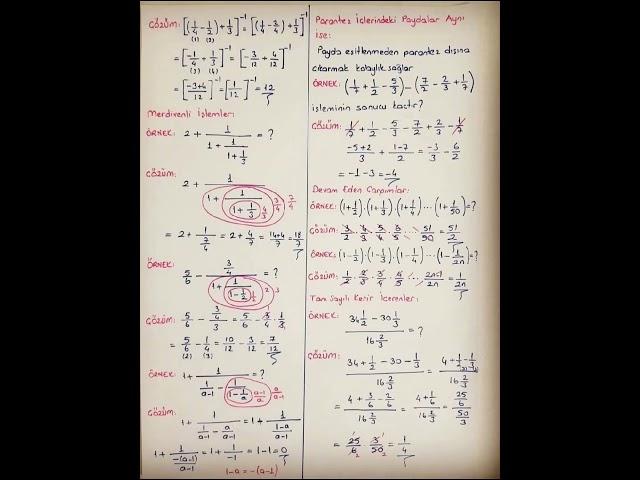 ÇÖZÜM: [(1/4 - 1/2) + 1/3]⁻¹ = [(1/4 - 2/4) + 1/3]⁻¹
(1) (2)
= [-1/4 + 1/3]⁻¹ = [-3/12 + 4/12]⁻¹
(3) (4)
= [-3+4/12]⁻¹ = [1/12]⁻¹ = 12
Merdivenli İşlemler:
ÖRNEK: 2 + 1/(1 + 1/(1 + 1/3)) = ?
ÇÖZÜM: 2 + 1/(1 + 1/(1 + 1/3)) 4/3 3/4 7/4
= 2 + 1/(7/4) = 2 + 4/7 = 14+4/7 = 18/7
ÖRNEK: 5/6 - (3/4)/(1 + 1/(1 - 1/2)) = ? 1/2 2 3
ÇÖZÜM: 5/6 - (3/4)/3 = 5/6 - 3/4 · 1/3
= 5/6 - 1/4 = 10/12 - 3/12 = 7/12
(2) (3)
ÖRNEK: 1 + 1/(1/(a-1) - 1/(1 - 1/a)) = ? a-1/a a/a-1
ÇÖZÜM: 1 + 1/(1/(a-1) - a/(a-1)) = 1 + 1/((1-a)/(a-1))
1 + 1/(-(a-1)/(a-1)) = 1 + 1/-1 = 1 - 1 = 0
1-a = -(a-1)
Parantez İçlerindeki Paydalar Aynı
ise:
Payda eşitlenmeden parantez dışına
çıkarmak kolaylık sağlar
ÖRNEK: (1/7 + 1/2 - 5/3) - (7/2 - 2/3 + 1/7)
işleminin sonucu kaçtır?
ÇÖZÜM: 1/7 + 1/2 - 5/3 - 7/2 + 2/3 - 1/7
-5+2/3 + 1-7/2 = -3/3 - 6/2
= -1 - 3 = -4
Devam Eden Çarpımlar:
ÖRNEK: (1+1/2)·(1+1/3)·(1+1/4) ... (1+1/50) = ?
ÇÖZÜM: 3/2 · 4/3 · 5/4 · 6/5 ... 51/50 = 51/2
ÖRNEK: (1-1/2)·(1-1/3)·(1-1/4) ... (1-1/2n) = ?
ÇÖZÜM: 1/2 · 2/3 · 3/4 · 4/5 ... 2n-1/2n = 1/2n
Tam Sayılı Kesir İçerenler:
ÖRNEK: (34 1/2 - 30 1/3)/(16 2/3) = ?
ÇÖZÜM: (34 + 1/2 - 30 - 1/3)/(16 2/3) = (4 + 1/2 - 1/3)/(16 2/3)
(4 + 3/6 - 2/6)/(16 2/3) = (4 + 1/6)/(16 2/3) = (25/6)/(50/3)
= 25/6 · 3/50 = 1/4